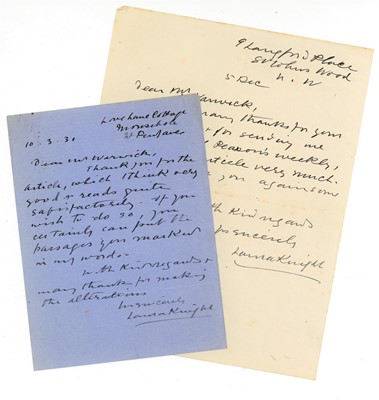 9 Langford Place
St Johns Wood
N. W
5 Dec
Dear Mr Warwick,
many thanks for your
for sending me
Pearson's weekly,
article very much.
you again some
Kind regards
sincerely
Laura Knight
Love Lane Cottage
Mousehole
Penzance
10 . 3 . 31
Dear Mr Warwick,
Thank you for the
article, which I think very
good & reads quite
satisfactorily. If you
wish to do so, you
certainly can put the
passages you marked
in my words.
With Kind regards &
many thanks for making
the alterations
sincerely
Laura Knight